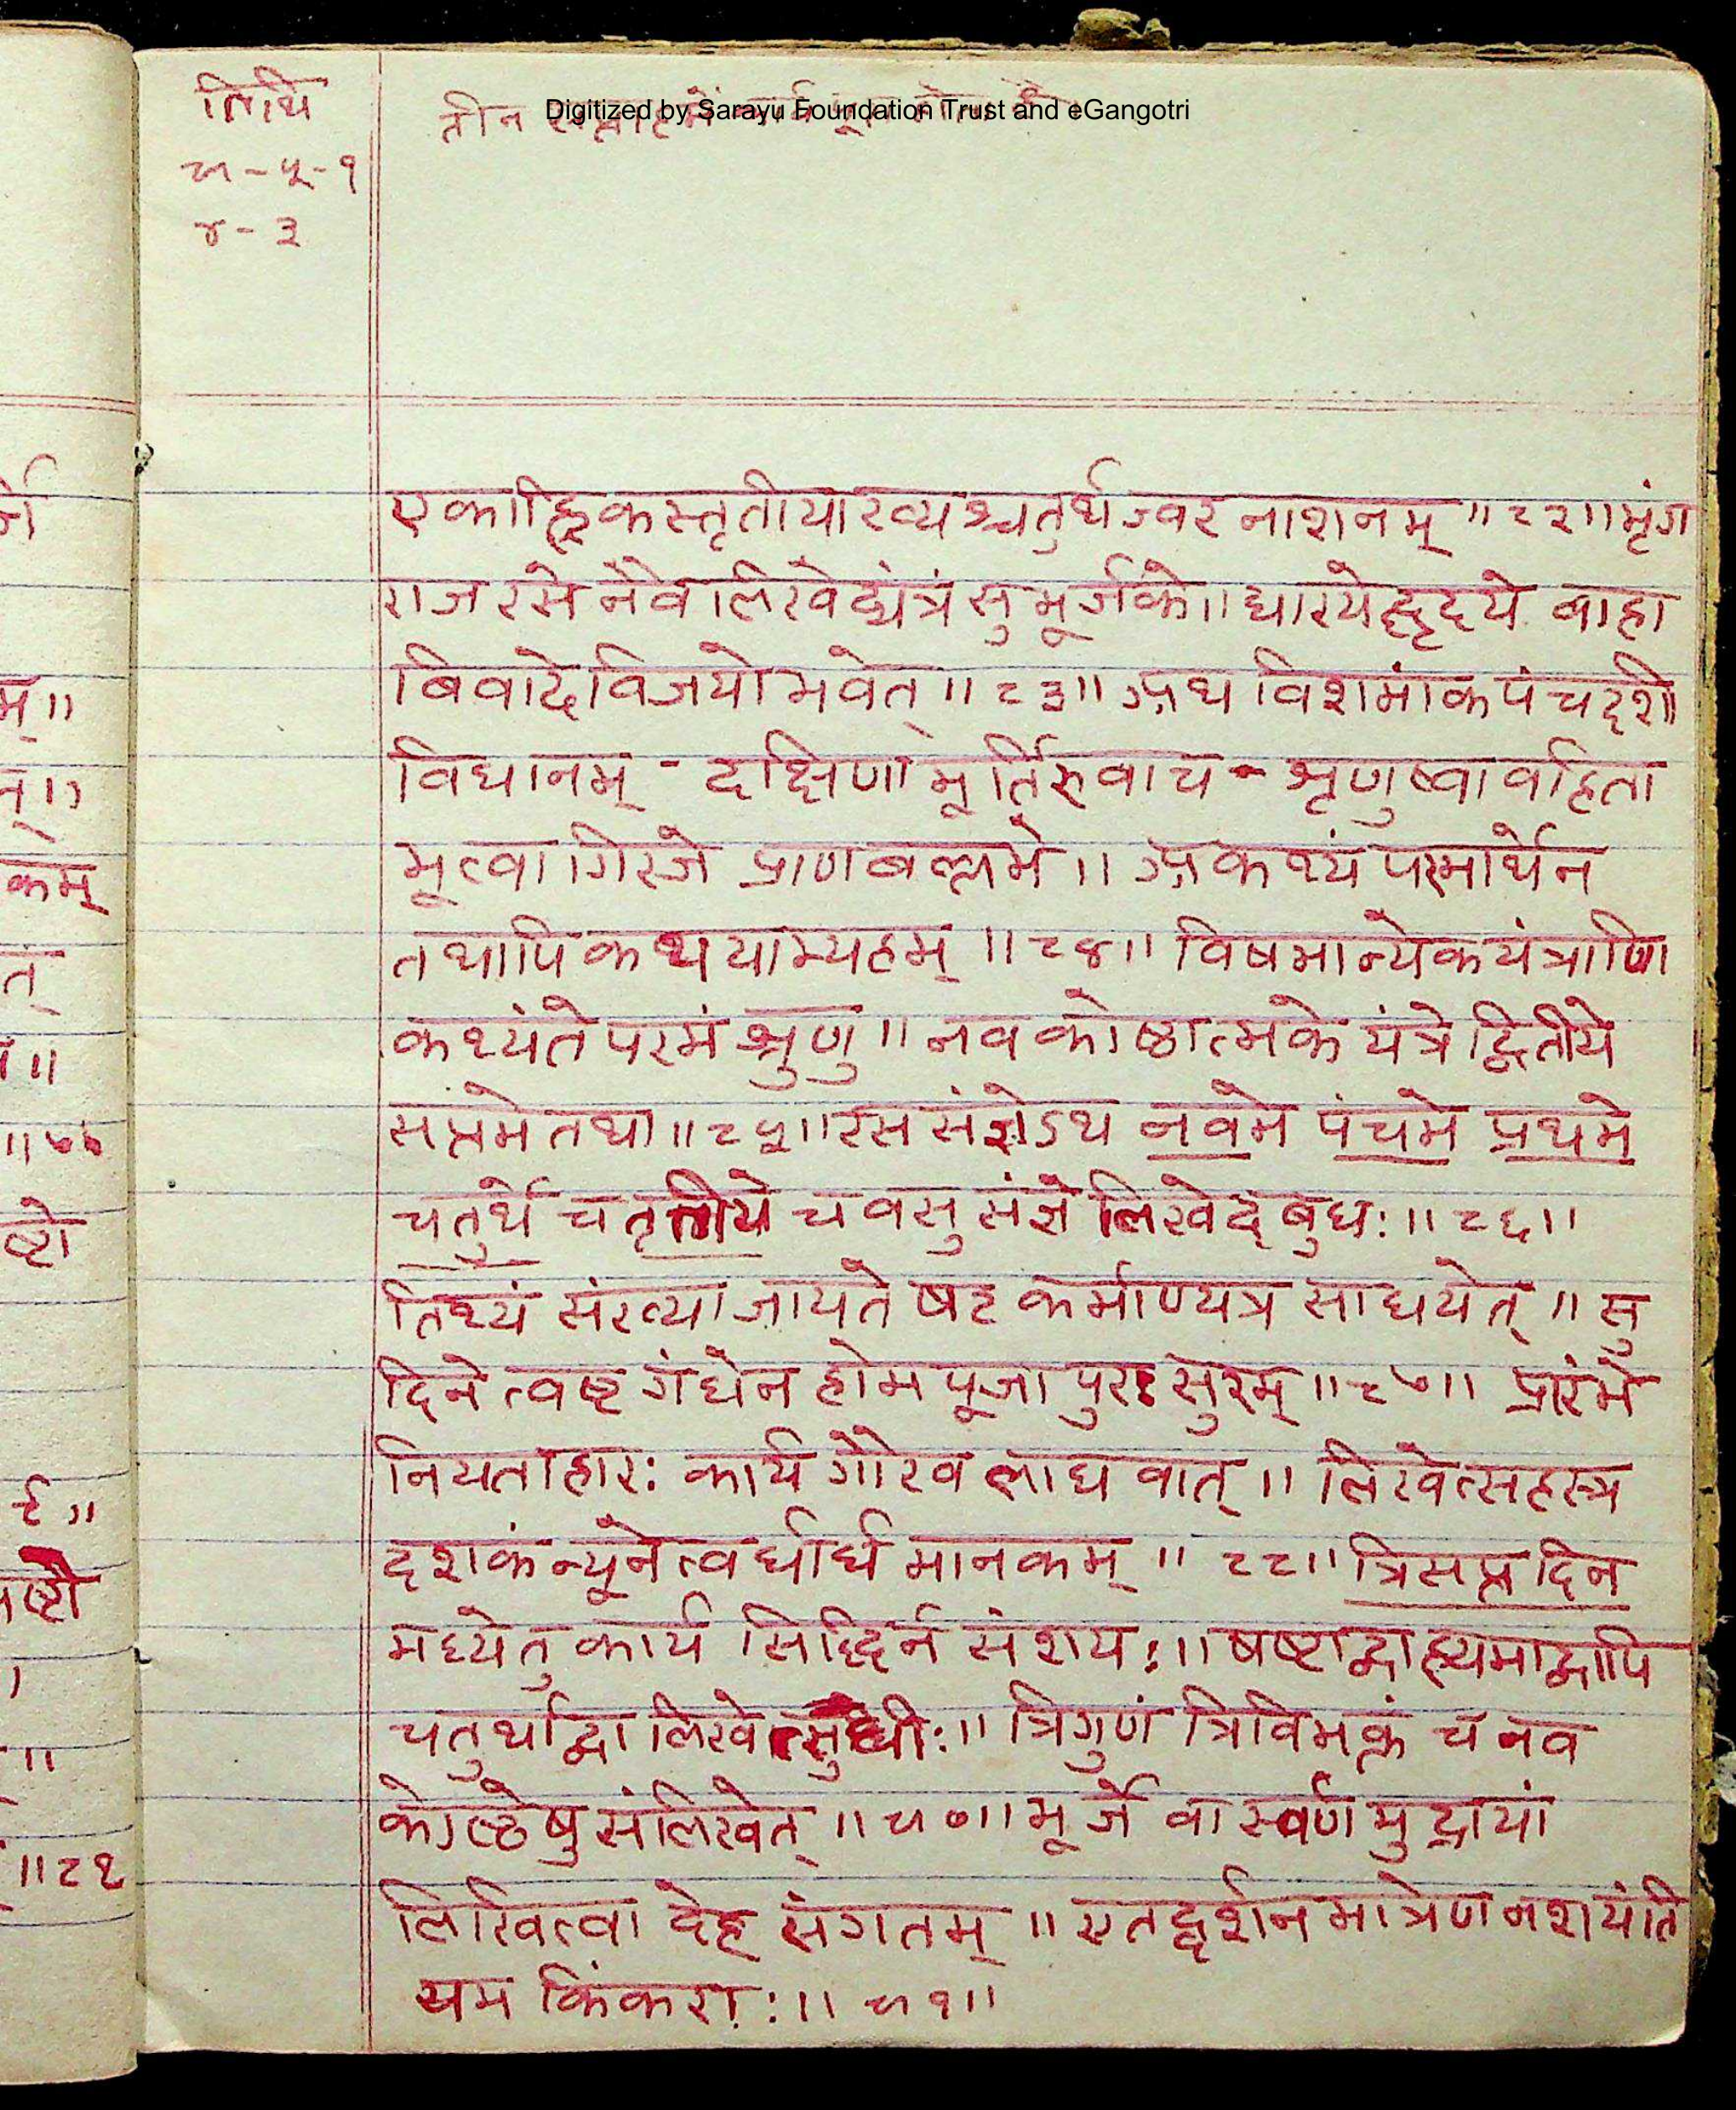 तिथि
९-५-१
४-३
तीन
Digitized by Sarayu Foundation Trust and eGangotri
एकाह्निकस्तृतीयाख्यश्चतुर्थज्वरनाशनम् ॥८२॥ भृंग
राजरसेनैव लिखेद्यंत्रं सुभूर्जके॥ धारयेद्धृदये बाहा
बिवादे विजयो भवेत् ॥८३॥ अथ विशमांक पंचदशी
विधानम् - दक्षिणामूर्तिरुवाच - श्रृणुष्वावहिता
भूत्वा गिरजे प्राणबल्लभे॥ अकथ्यं परमार्थेन
तथापि कथयाम्यहम् ॥८४॥ विषमान्येकयंत्राणि
कथ्यंते परमं श्रुणु॥ नवकोष्ठात्मके यंत्रे द्वितीये
सप्तमे तथा॥८५॥ रस संज्ञेऽथ नवमे पंचमे प्रथमे
चतुर्थे च तृतीये च वसु संज्ञे लिखेद् बुधः॥८६॥
तिथ्यं संख्या जायते षट कर्माण्यत्र साधयेत् ॥ सु
दिने त्वष्ट गंधेन होम पूजा पुरः सुरम् ॥८७॥ प्रारंभे
नियताहारः कार्य गौरव लाघवात् ॥ लिखेत्सहस्त्र
दशकं न्यूने त्वर्धार्ध मानकम् ॥८८॥ त्रिसप्त दिन
मध्येतु कार्य सिद्धिर्न संशयः॥ षष्टाद्वाह्यमाद्वापि
चतुर्थाद्वा लिखेत्सुधीः॥ त्रिगुणं त्रिविभक्तं च नव
कोष्ठेषु संलिखेत् ॥९०॥ भूर्जे वा स्वर्णमुद्रायां
लिखित्वा देह संगतम् ॥ एतद्दर्शनमात्रेण नशयंति
यम किंकराः॥९१॥